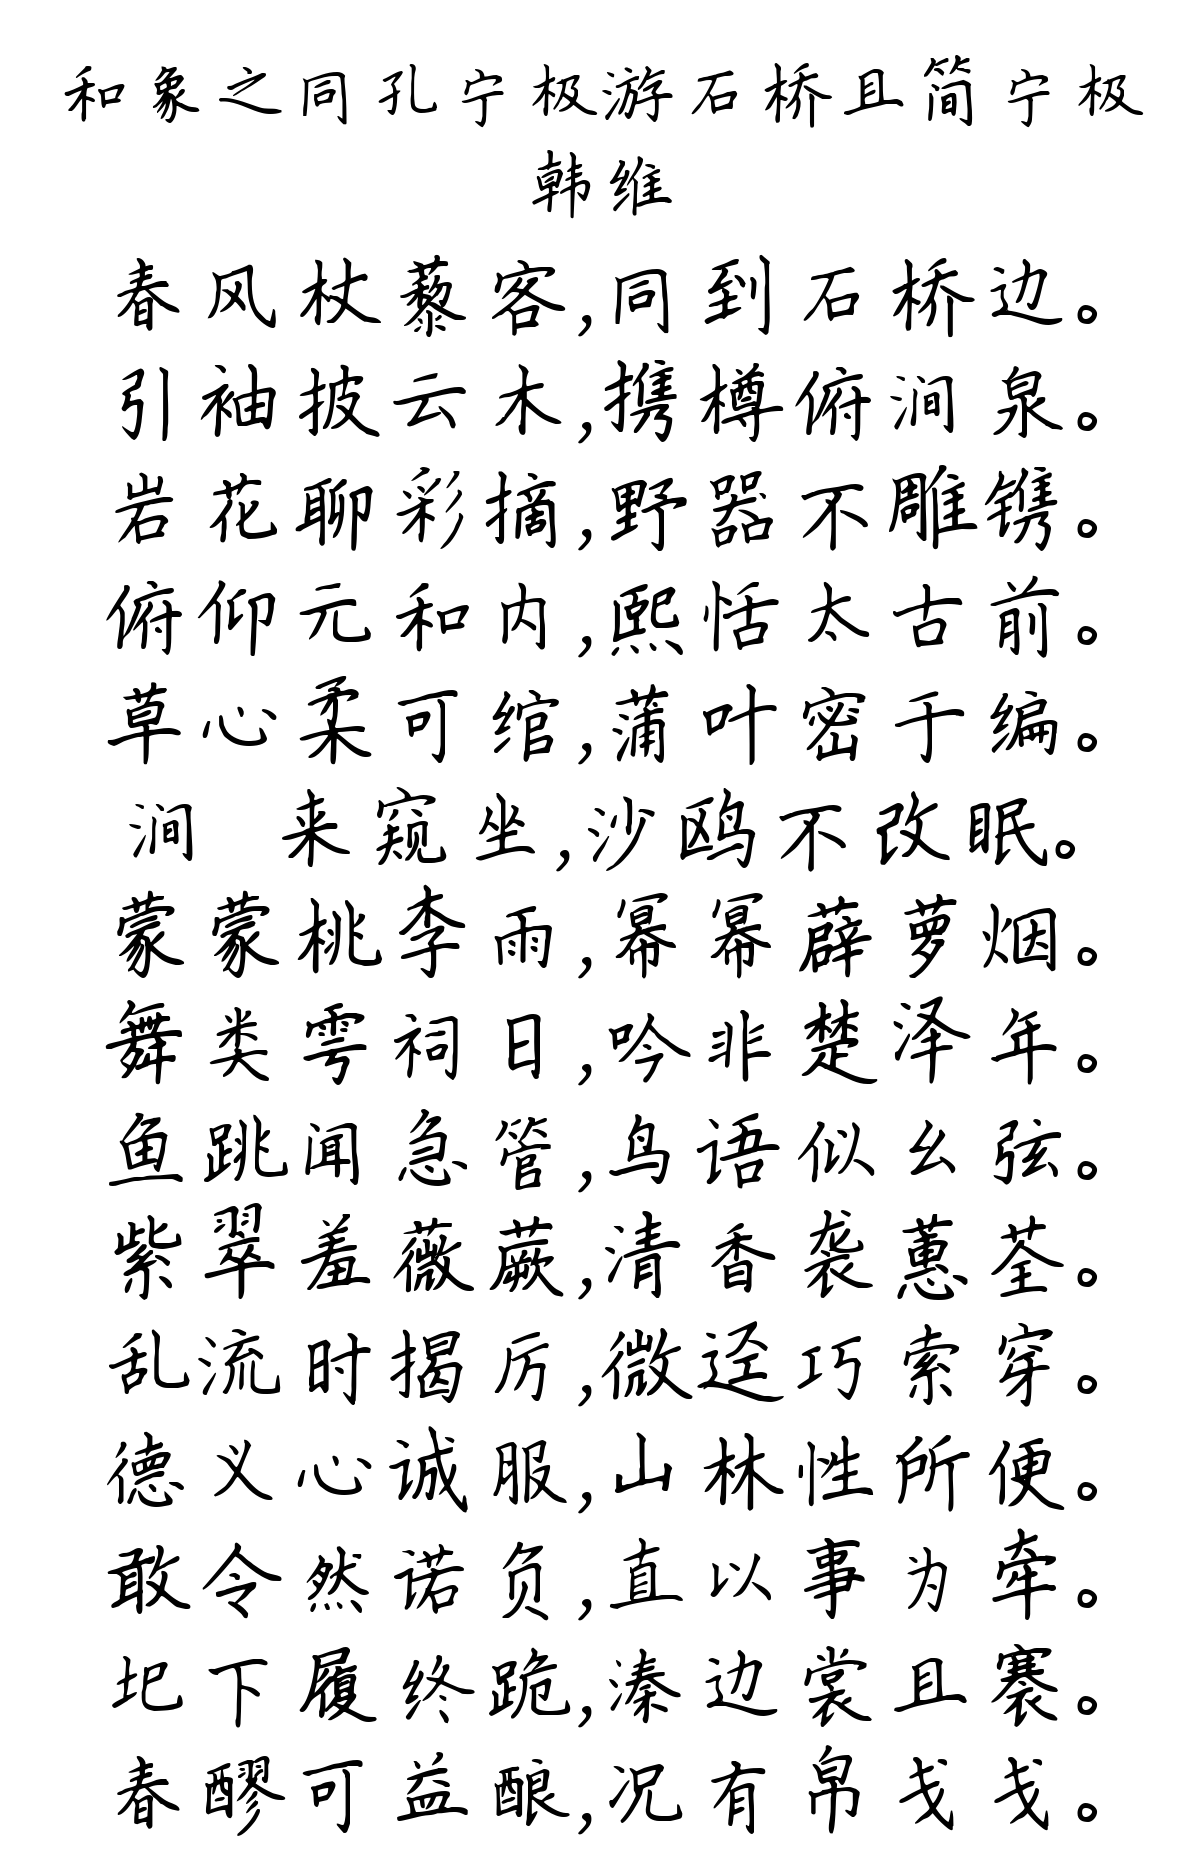 和象之同孔宁极游石桥且简宁极
韩维
春风杖藜客,同到石桥边。
引袖披云木,携樽俯涧泉。
岩花聊彩摘,野器不雕镌。
俯仰元和内,熙恬太古前。
草心柔可绾,蒲叶密于编。
涧 来窥坐,沙鸥不改眠。
蒙蒙桃李雨,幂幂薜萝烟。
舞类雩祠日,吟非楚泽年。
鱼跳闻急管,鸟语似幺弦。
紫翠羞薇蕨,清香袭蕙荃。
乱流时揭厉,微迳巧索穿。
德义心诚服,山林性所便。
敢令然诺负,直以事为牵。
圯下履终跪,溱边裳且褰。
春醪可益酿,况有帛戋戋。